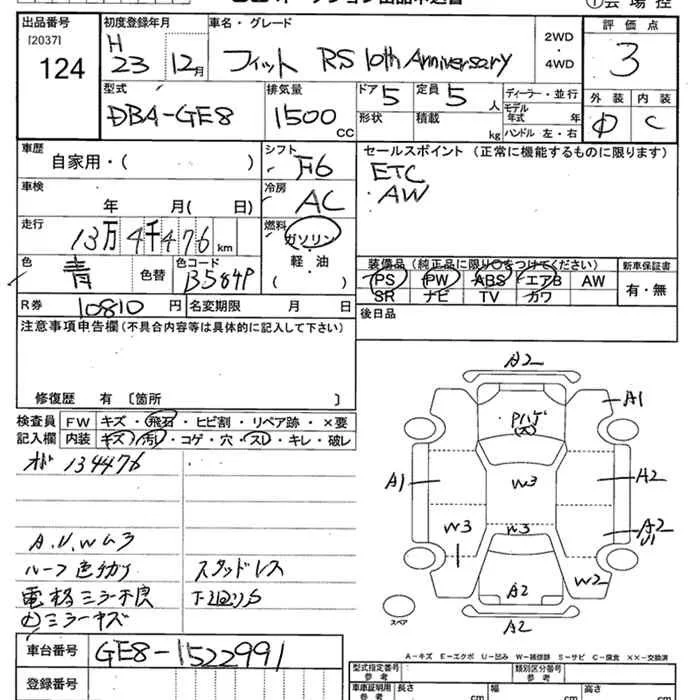 ①会場控
出品番号 初度登録年月 車名・グレード 2WD・4WD 評価点
[2037] 124 H 23 12月 フィット RS 10th Anniversary 3
型式 排気量 ドア 5 定員 5 人 ディーラー・並行 外装 内装
DBA-GE8 1500 CC 形状 積載 kg モデル年式 年 C
ハンドル 左・右
車歴 シフト F6 セールスポイント (正常に機能するものに限ります)
自家用・( ) ETC
車検 冷房 AC ・AW
年 月( 日)
走行 13万4千476 km 燃料 ガソリン
軽・油
( )
色 青 色替 色コード B584P
装備品 (純正品に限り○をつけてください) 新車保証書
PS PW ABS エアB AW 有・無
SR ナビ TV カワ
R券 10810 円 名変期限 月 日 後日品
注意事項申告欄 (不具合内容等は具体的に記入して下さい)
修復歴 有 〔箇所 〕
検査員 FW キズ・飛石・ヒビ割・リペア跡・×要
記入欄 内装 キズ・汚レ・コゲ・穴・スレ・キレ・破レ
134476
A.U.Wム3
ルーフ色分リ スタッドレス
電格ミラー不良 下廻りS
ミラーキズ
A2
A1
Pハゲ
(大)
A1 W3 A2
W3 W3 A2
U1
W2
A2
スペア A2
A-キズ E-エクボ U-凹み W-補修跡 S-サビ C-腐食 XX-交換済
車台番号 GE8-1522991
登録番号
型式指定番号 参考 類別区分番号 参考
車庫証明用 参考 長さ cm 幅 cm 高さ cm